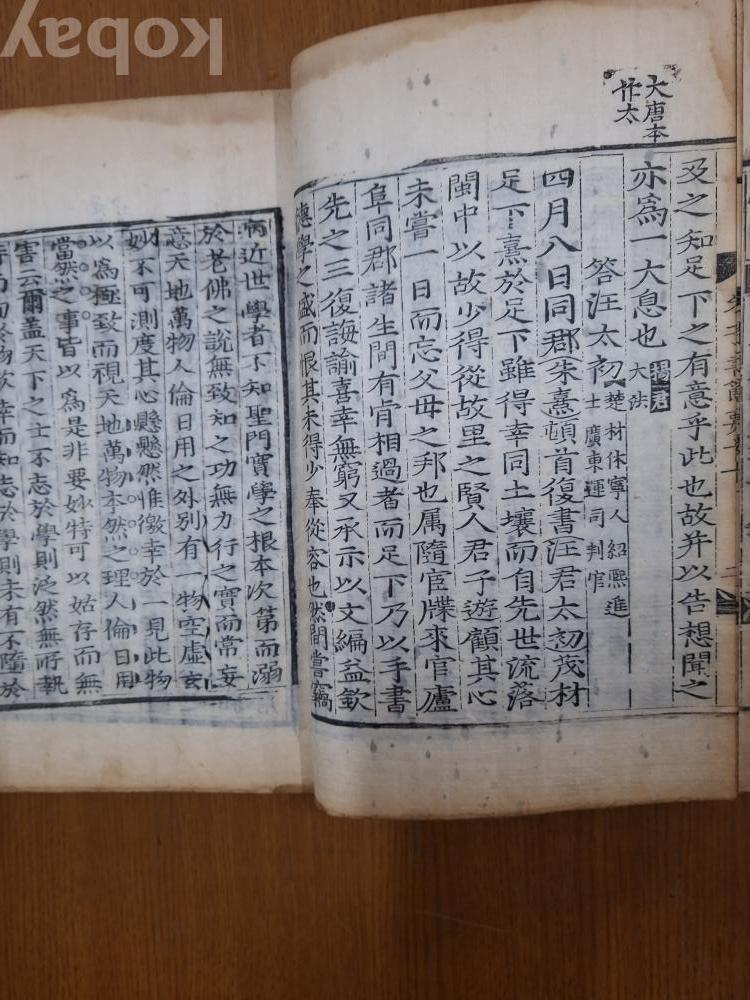 kobay
大唐本
作太
及之知足下之有意乎此也故并以告想聞之
亦爲一大息也大法楊君
答汪太初楚材休寧人紹熙進士廣東運司判官
四月八日同郡朱熹頓首復書汪君太初茂材
足下熹於足下雖得幸同土壤而自先世流落
閩中以故少得從故里之賢人君子遊顧其心
未嘗一日而忘父母之邦也属隨宦牒來官廬
阜同郡諸生間有肯相過者而足下乃以手書
先之三復誨諭喜幸無窮又承示以文編益欽
德學之盛而恨其未得少奉從容也然間嘗竊
病近世學者不知聖門實學之根本次第而溺
於老佛之說無致知之功無力行之實而常妄
意天地萬物人倫日用之外別有一物空虛玄
妙不可測度其心懸懸然惟徼幸於一見此物
以爲極致而視天地萬物本然之理人倫日用
當然之事皆以爲是非要妙特可以姑存而無
害云爾盖天下之士不志於學則泛然無所執
而知志於學則未有不隋於